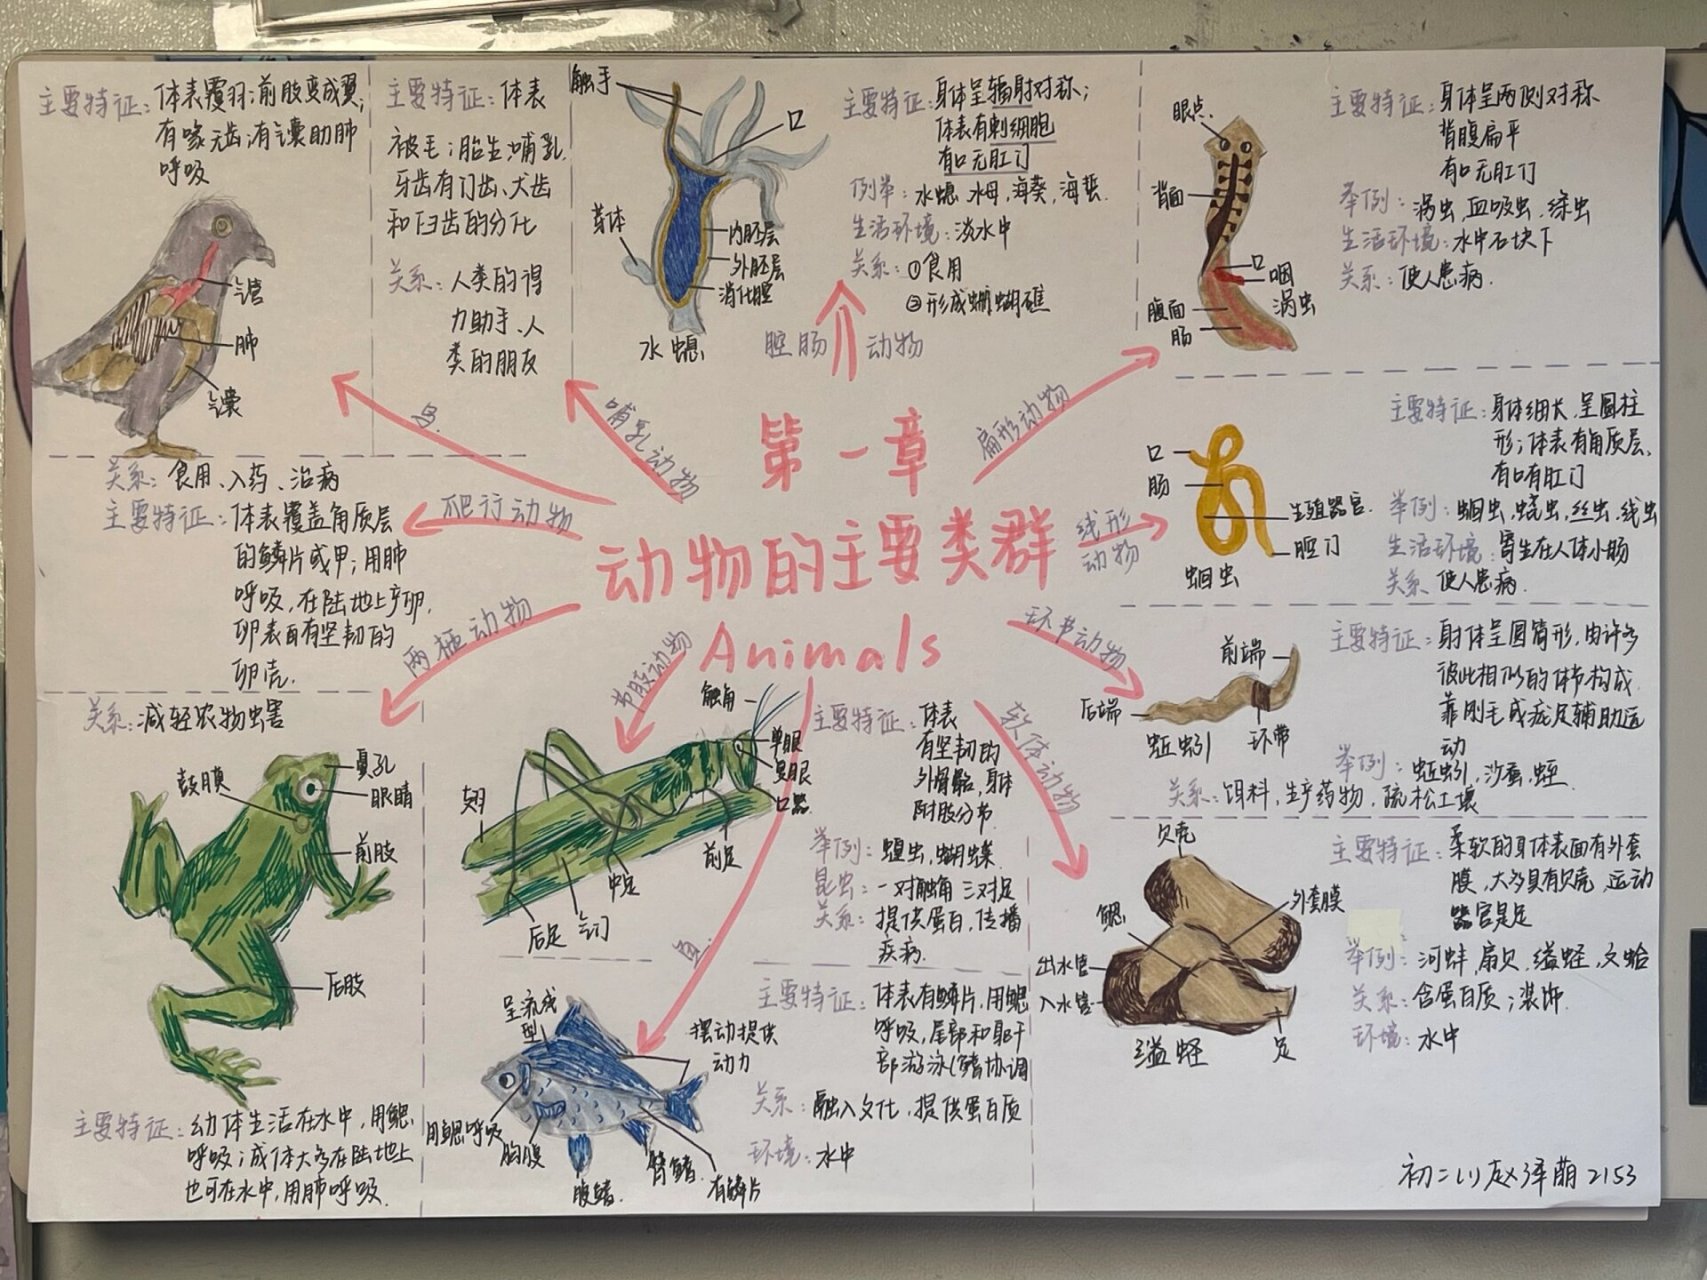 第一章
动物的主要类群
Animals
鸟
主要特征：体表覆羽；前肢变成翼；
有喙无齿；有气囊助肺
呼吸
气管
肺
气囊
关系：食用、入药、治病
哺乳动物
主要特征：体表
被毛；胎生；哺乳
牙齿有门齿、犬齿
和臼齿的分化
关系：人类的得
力助手、人
类的朋友
腔肠动物
触手
口
芽体
内胚层
外胚层
消化腔
水螅
主要特征：身体呈辐射对称；
体表有刺细胞
有口无肛门
例举：水螅、水母、海葵、海蜇
生活环境：淡水中
关系：①食用
②形成珊瑚礁
扁形动物
眼点
背面
口
咽
涡虫
腹面
肠
主要特征：身体呈两侧对称
背腹扁平
有口无肛门
举例：涡虫、血吸虫、绦虫
生活环境：水中石块下
关系：使人患病.
线形
动物
口
肠
生殖器官
肛门
蛔虫
主要特征：身体细长、呈圆柱
形；体表有角质层、
有口有肛门
举例：蛔虫，蛲虫，丝虫，线虫
生活环境：寄生在人体小肠
关系：使人患病.
环节动物
前端
后端
蚯蚓
环带
主要特征：身体呈圆筒形，由许多
彼此相似的体节构成
靠刚毛或疣足辅助运
动
举例：蚯蚓，沙蚕，蛭
关系：饵料，生产药物，疏松土壤
软体动物
贝壳
外套膜
鳃
出水管
入水管
足
缢蛏
主要特征：柔软的身体表面有外套
膜，大多具有贝壳，运动
器官是足
举例：河蚌，扇贝，缢蛏，文蛤
关系：含蛋白质；装饰
环境：水中
爬行动物
主要特征：体表覆盖角质层
的鳞片或甲；用肺
呼吸，在陆地上产卵，
卵表面有坚韧的
卵壳.
两栖动物
关系：减轻农物虫害
鼓膜
鼻孔
眼睛
前肢
后肢
主要特征：幼体生活在水中，用鳃
呼吸；成体大多在陆地上
也可在水中，用肺呼吸
节肢动物
触角
单眼
复眼
口器
翅
前足
中足
后足
气门
主要特征：体表
有坚韧的
外骨骼，身体
附肢分节
举例：蝗虫，蝴蝶
昆虫：一对触角 三对足
关系：提供蛋白，传播
疾病.
鱼
呈流线
型
摆动提供
动力
用鳃呼吸
胸鳍
腹鳍
臀鳍
有鳞片
主要特征：体表有鳞片，用鳃
呼吸，尾部和躯干
部游泳(鳍协调
关系：融入文化，提供蛋白质
环境：水中
初二(1)赵泽萌 2153